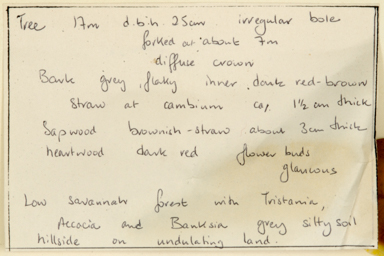 Tree 17m d.b.h. 25cm irregular bole
forked at about 7m
diffuse crown
Bark grey, flaky inner dark red-brown
straw at cambium ca, 1½ cm thick
Sapwood brownish-straw about 3cm thick
heartwood dark red flower buds
glaucous
Low savannah forest with Tristania,
Accacia and Banksia grey silty soil
hillside on undulating land.